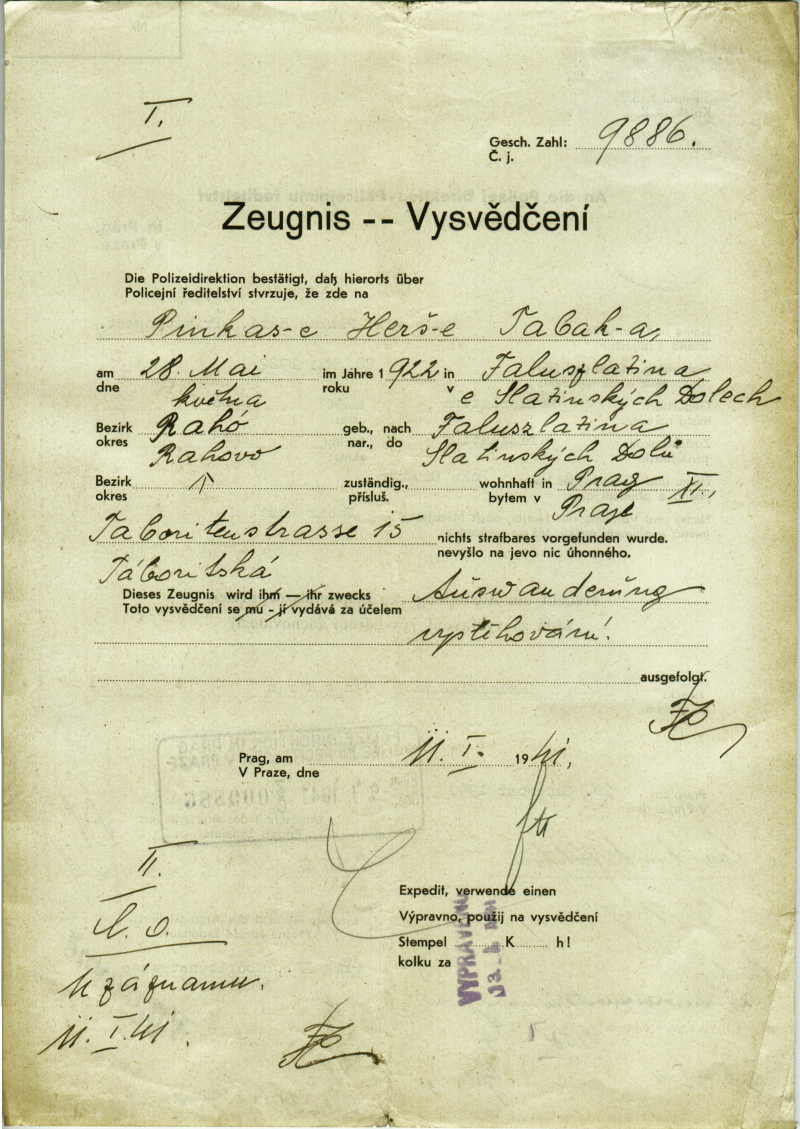 I.
Gesch. Zahl: 9886.
Č. j.
Zeugnis -- Vysvědčení
Die Polizeidirektion bestätigt, daß hierorts über
Policejní ředitelství stvrzuje, že zde na
Pinkas-e Herš-e Tabak-a,
am 28. Mai im Jahre 1922 in Faluszlatina
dne května roku v e Slatinských Dolech
Bezirk Rahó geb., nach Faluszlatina
okres Rahovo nar., do Slatinských Dolů
Bezirk zuständig., wohnhaft in Prag XI.,
okres přísluš. bytem v Praze
Taboritenstrasse 15 nichts strafbares vorgefunden wurde.
Táboritská nevyšlo na jevo nic úhonného.
Dieses Zeugnis wird ihm — ihr zwecks Auswanderung
Toto vysvědčení se mu - jí vydává za účelem
vystěhování.
ausgefolgt.
Prag, am 11. I. 1941,
V Praze, dne
II.
Expedit, verwende einen
Výpravno, použij na vysvědčení
Stempel K h!
kolku za
VYPRAVENO
k záznamu.
11. I. 41.